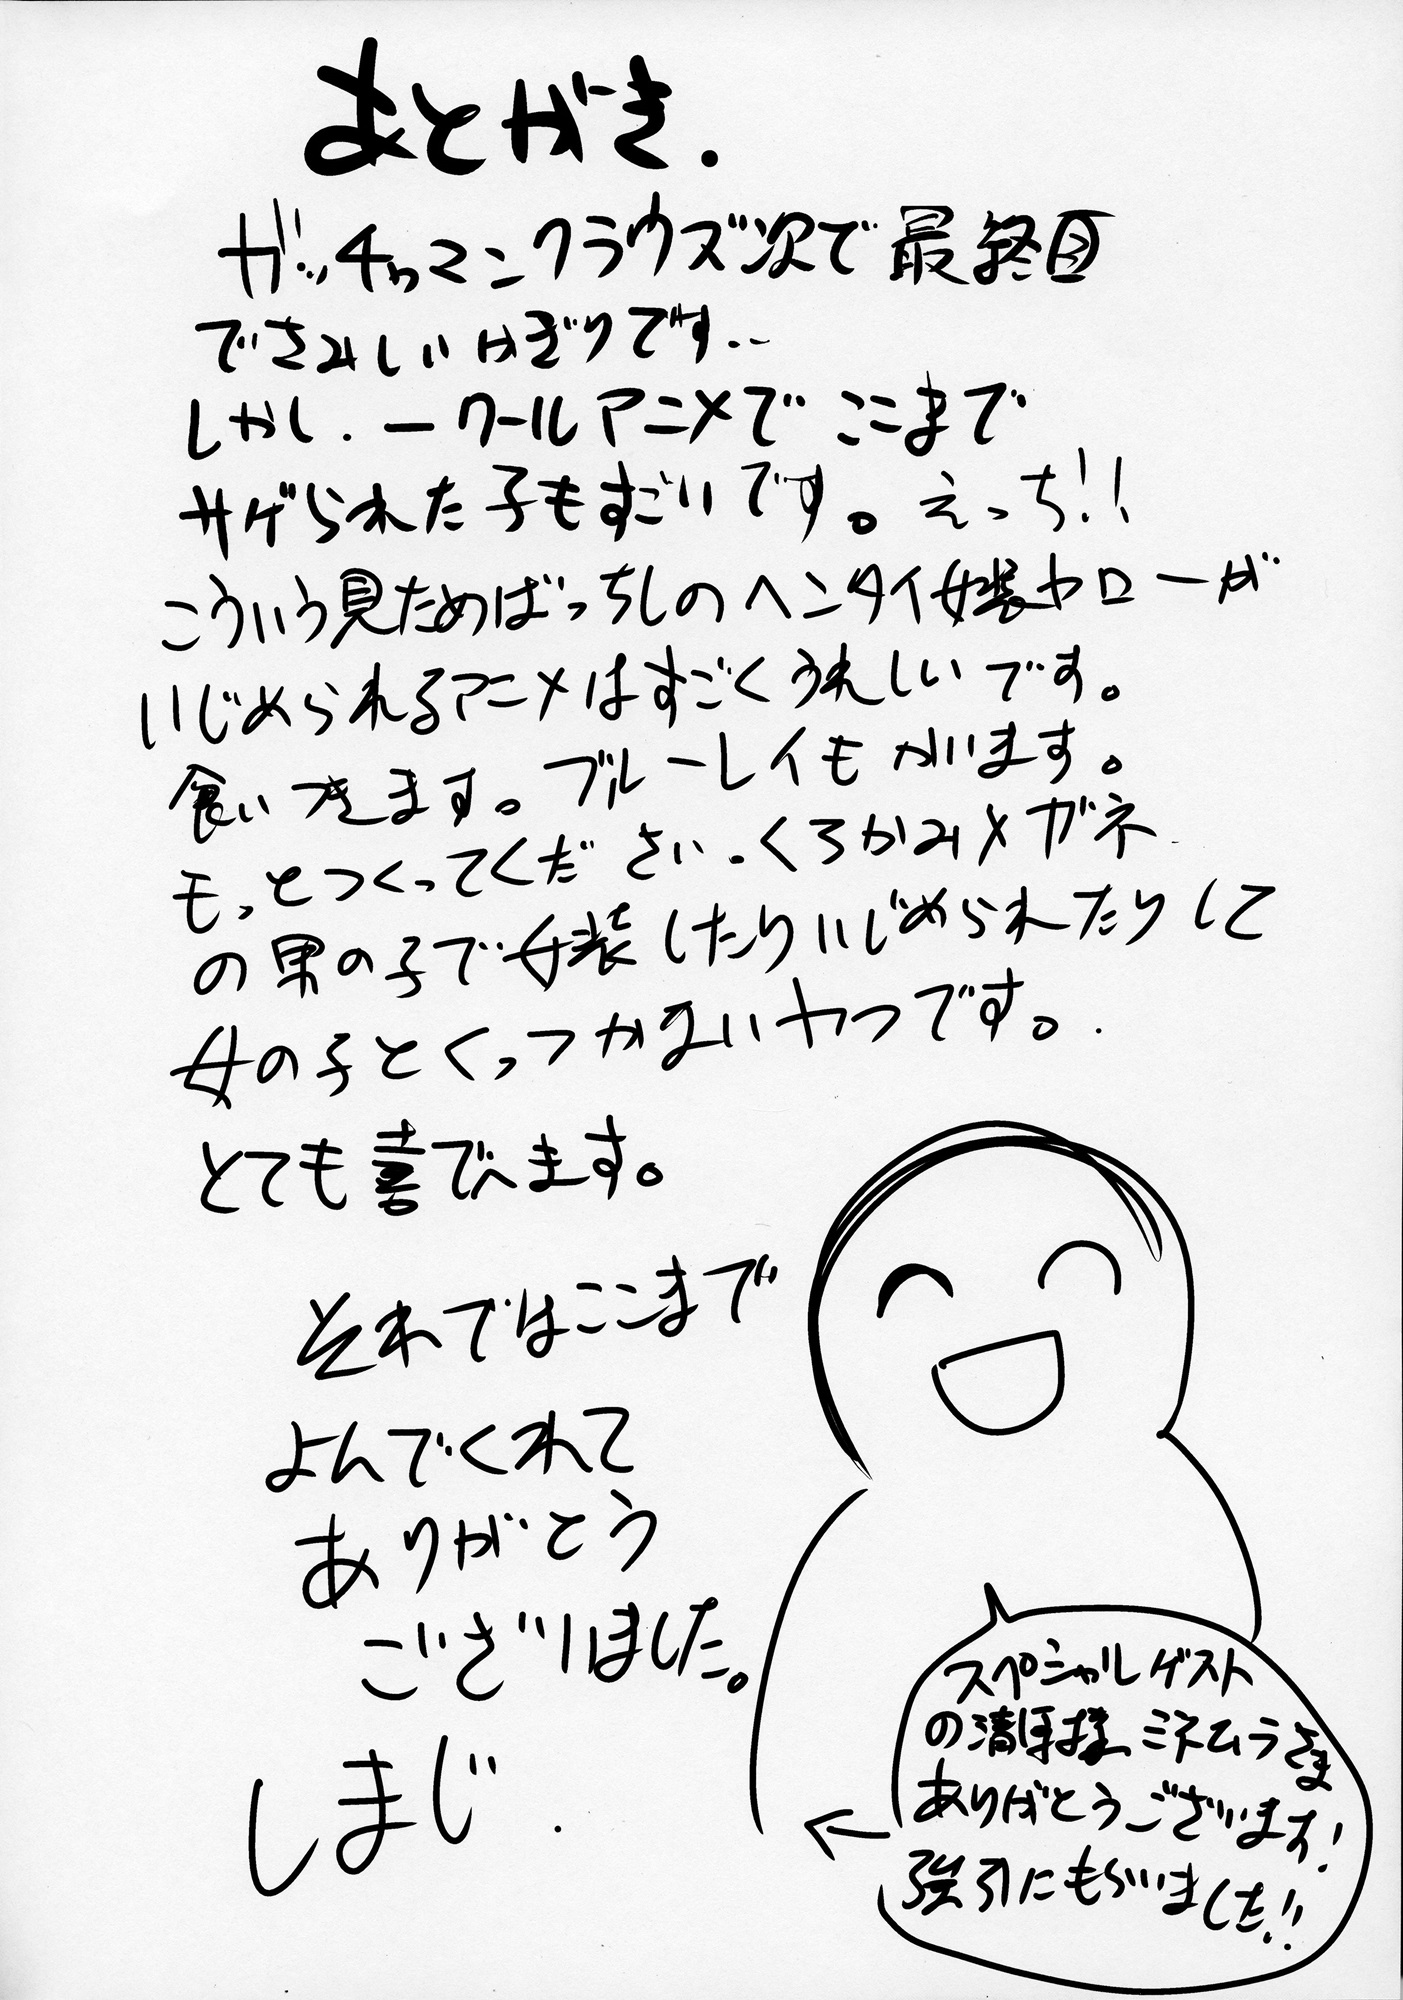 あとがき.
ガッチャマンクラウズ次で最終回
でさみしいかぎりです..
しかし.一クールアニメでここまで
サゲられた子もすごいです。えっち!!
こういう見ためばっちしのヘンタイ女装ヤローが
いじめられるアニメはすごくうれしいです。
食いつきます。ブルーレイもかいます。
もっとつくってください.くろかみメガネ
の男の子で女装したりいじめられたりして
女の子とくっつかないヤつです。.
とても喜びます。
それではここまで
よんでくれて
ありがとう
ございました。
しまじ.
スペシャルゲスト
の清ほ様、ミネムラさま
ありがとうございます!
強引にもらいました!!